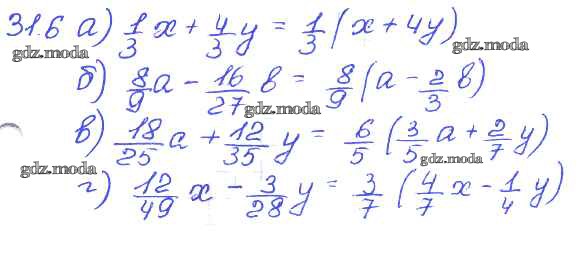 31.6 а) 1/3 x + 4/3 y = 1/3 (x + 4y)
gdz.moda gdz.moda
б) 8/9 a - 16/27 b = 8/9 (a - 2/3 b)
gdz.moda
в) 18/25 a + 12/35 y = 6/5 (3/5 a + 2/7 y)
gdz.moda gdz.moda
г) 12/49 x - 3/28 y = 3/7 (4/7 x - 1/4 y)